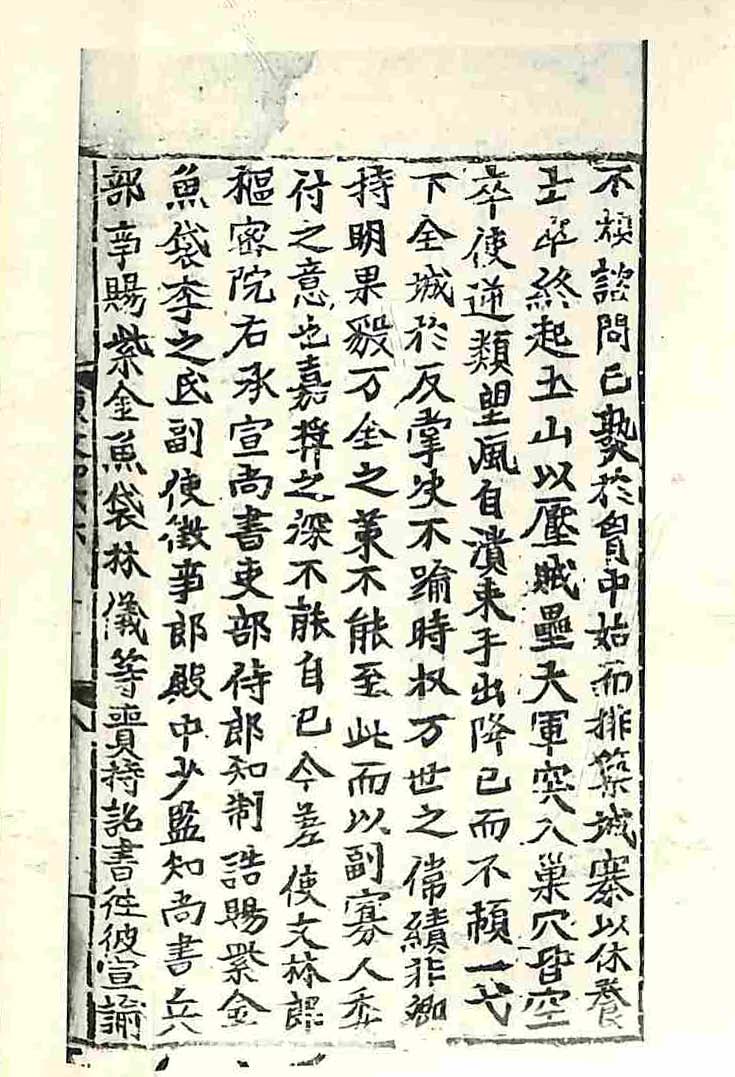 不煩諮問已熟於胷中始而排築城寨以休養
士卒終起土山以壓賊壘大軍突入巢穴皆空
卒使逆類望風自潰束手出降已而不頓一戈
下全城於反掌决不踰時収万世之偉績非卿
持明果毅万全之策不能至此而以副寡人委
付之意也嘉奬之深不能自已今差使文林郎
樞密院右承宣尚書吏部侍郎知制誥賜紫金
魚袋李之氐副使徵事郎殿中少監知尚書兵
部事賜紫金魚袋林儀等賷持詔書徃彼宣諭